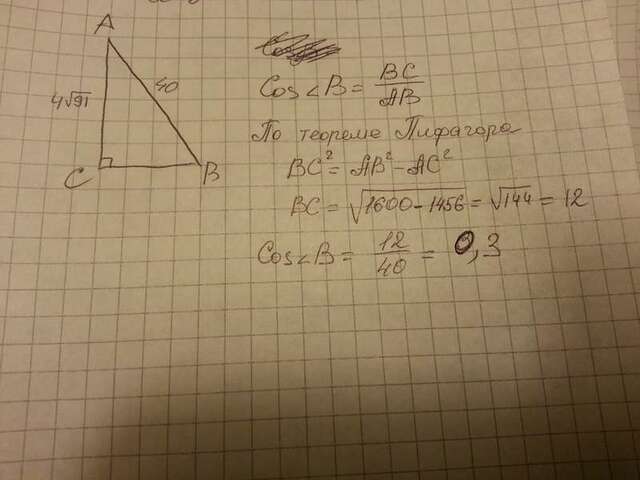 A
4√91
40
C
B
Cos∠B = BC/AB
По теореме Пифагора
BC² = AB² - AC²
BC = √1600-1456 = √144 = 12
Cos∠B = 12/40 = 0,3